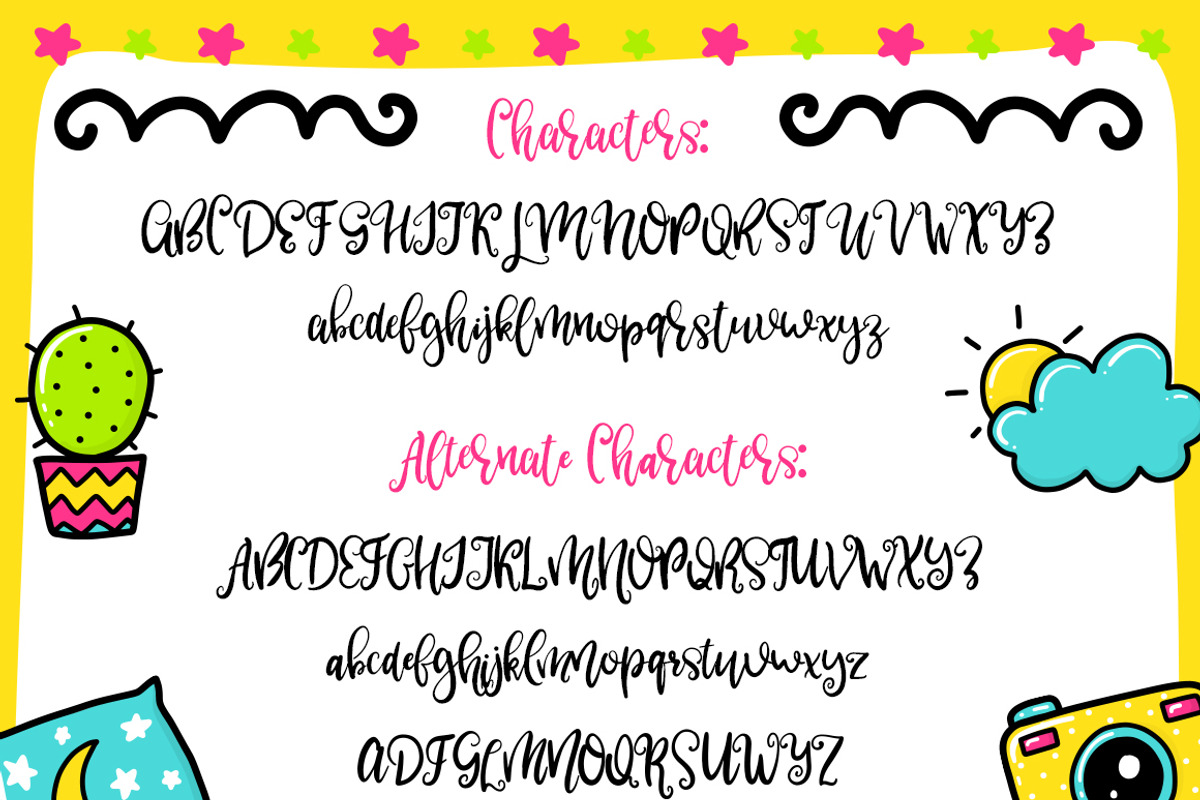 Characters:
ABCDEFGHIJKLMNOPQRSTUVWXYZ
abcdefghijklmnopqrstuvwxyz
Alternate Characters:
ABCDEFGHIJKLMNOPQRSTUVWXYZ
abcdefghijklmnopqrstuvwxyz
ADFGLMNOQRSUWYZ